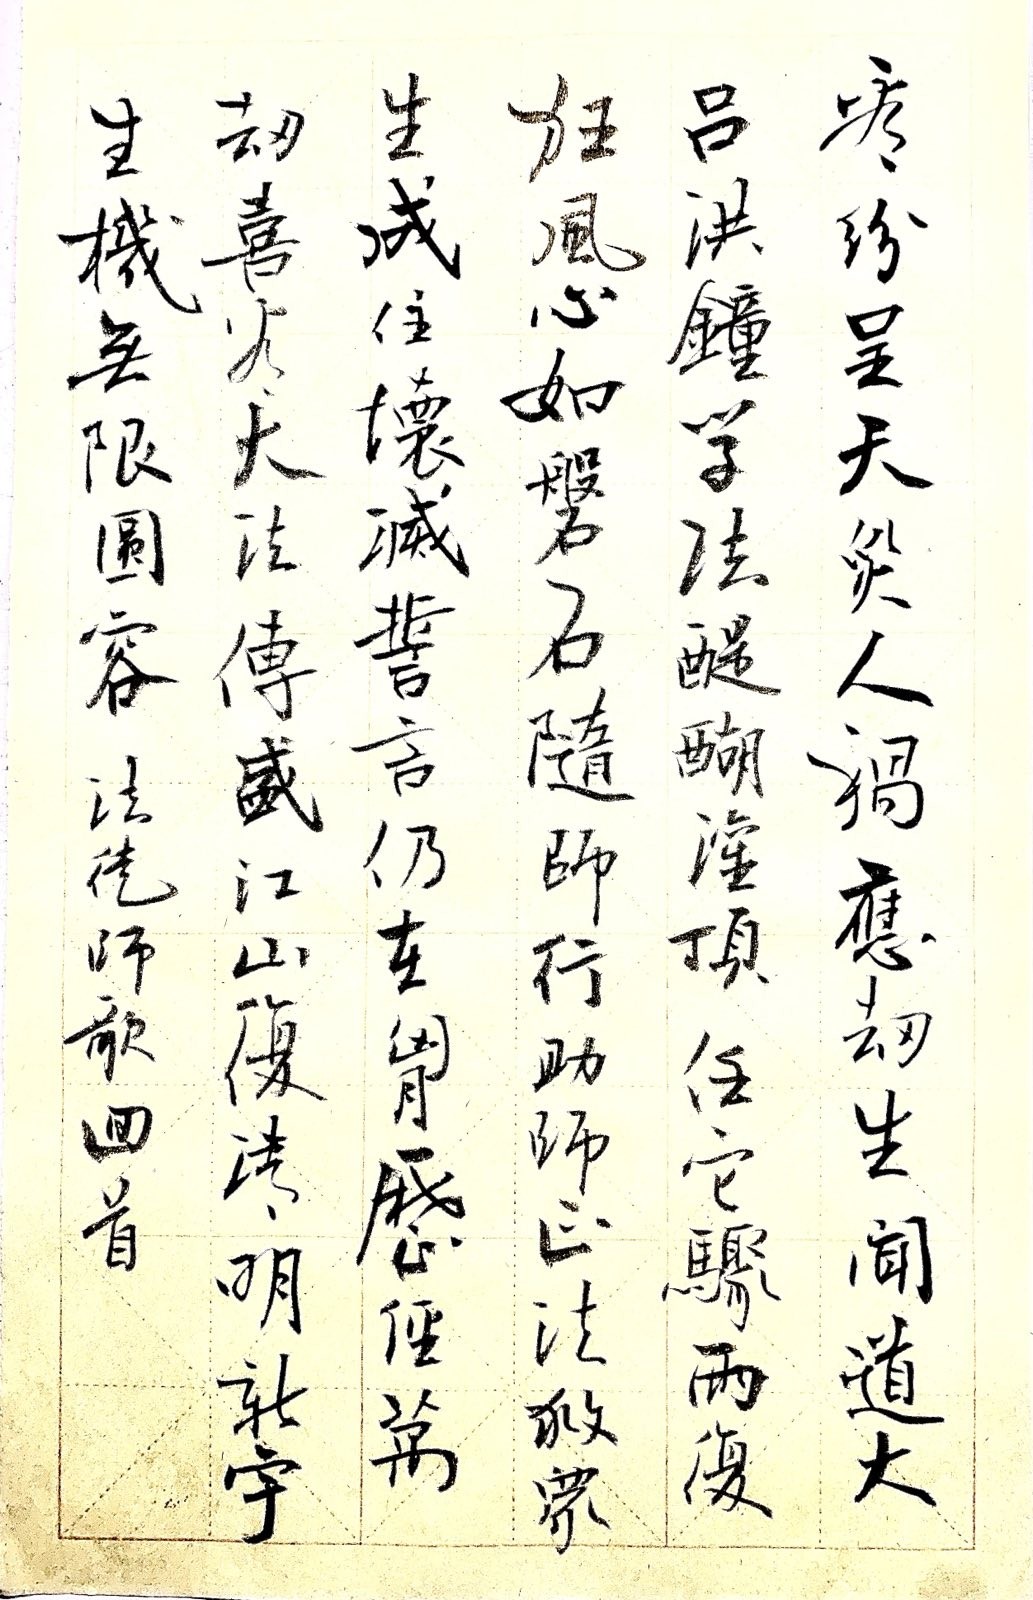 紛呈天災人禍應劫生聞道大
呂洪鐘学法醍醐灌頂任它驟雨復
狂風心如磐石隨師行助師正法救眾
生成住壞滅誓言仍在胷歷經萬
劫喜大法傳盛江山復清明新宇
生機無限圓容法徒師歌回首